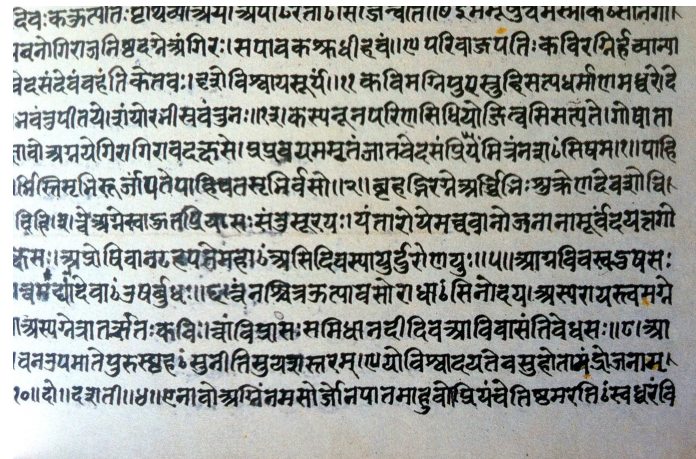 दिवः ककुत्पतिः पृथिव्या अयं । अपाꣳ रेताꣳसि जिन्वति ॥ इममूषुत्वमस्माकꣳ सनिंगा
पवनो गिरा जनिष्ठदग्ने अंगिरः । स पावक श्रुधी हवं ॥९ परि वाजपतिः कविरग्निर्हव्यान्य
वेदसं देवं वहंति केतवः । दृशे विश्वाय सूर्यं ॥११ कविमग्निमुप स्तुहि सत्यधर्माणमध्वरे । दे
भवंतु पीतये । शंयोरभी स्रवंतु नः ॥१३। कस्य नूनं परिणसि धियो जिन्वसि सत्पते । गोषाता
ज्ञा वो अग्नये गिरागिरा च दक्षसे । प्रप्र वयममृतं जातवेदसं प्रियं मित्रं न शꣳसिषम् ।१॥ पाहि
र्भिस्तिसृभिरूर्जां पते पाहि चतसृभिर्वसो ॥२॥ बृहद्भिरग्ने अर्चिभिः शुक्रेण देव शोचि
दिहि ।३। त्वे अग्ने स्वाहुत प्रियासः संतु सूरयः । यंतारो ये मघवानो जनानामूर्वं दयंत गो
क्षसः । अप्रोषिवान् गृहपते महाꣳ असि दिवस्पायुर्दुरोणयुः ॥५॥ आग्ने विवस्वदुषसः
द्या देवाꣳ उषर्बुधः ॥६॥ त्वं नश्चित्र ऊत्या वसो राधाꣳसि चोदय । अस्य रायस्त्वमग्ने
अस्यग्ने त्रातर्ऋतः कविः । त्वां विप्रासः समिधान दीदिव आ विवासंति वेधसः ॥८। आ
च न उपमाते पुरुस्पृहꣳ सुनीति सुयशस्तरम् ।९ यो विश्वा दयते वसु होता मंद्रो जनानाम् ।
१०॥ दो॥ दशती ॥४॥ एना वो अग्निं नमसोर्जो नपातमाहुवे । प्रियं चेतिष्ठमरतिꣳ स्वध्वरं वि